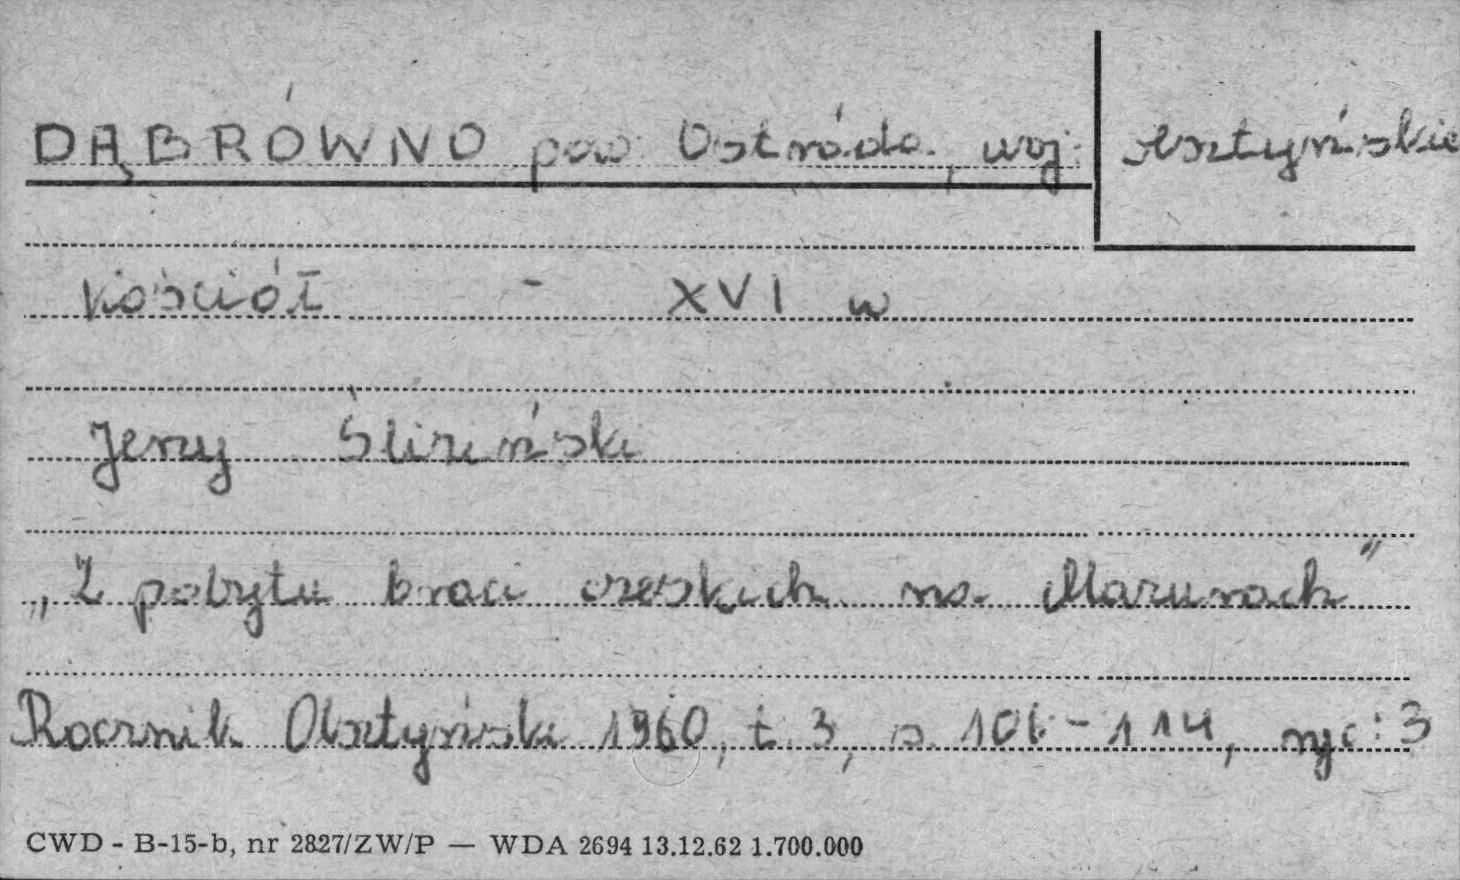 DĄBRÓWNO pow. Ostróda, woj. olsztyńskie
Kościół - XVI w
Jerzy Śliziński
„Z pobytu braci czeskich na Mazurach"
Rocznik Olsztyński 1960, t. 3, s. 106-114, ryc: 3
CWD - B-15-b, nr 2827/ZW/P — WDA 2694 13.12.62 1.700.000